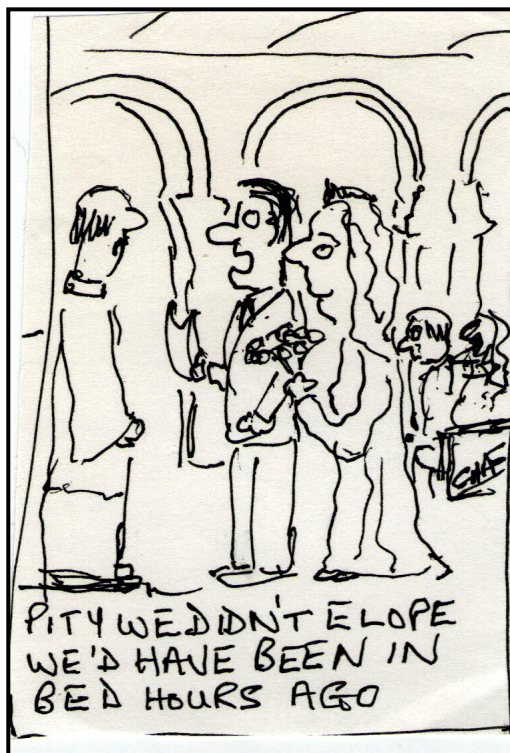 PITY WE DIDN'T ELOPE
WE'D HAVE BEEN IN
BED HOURS AGO